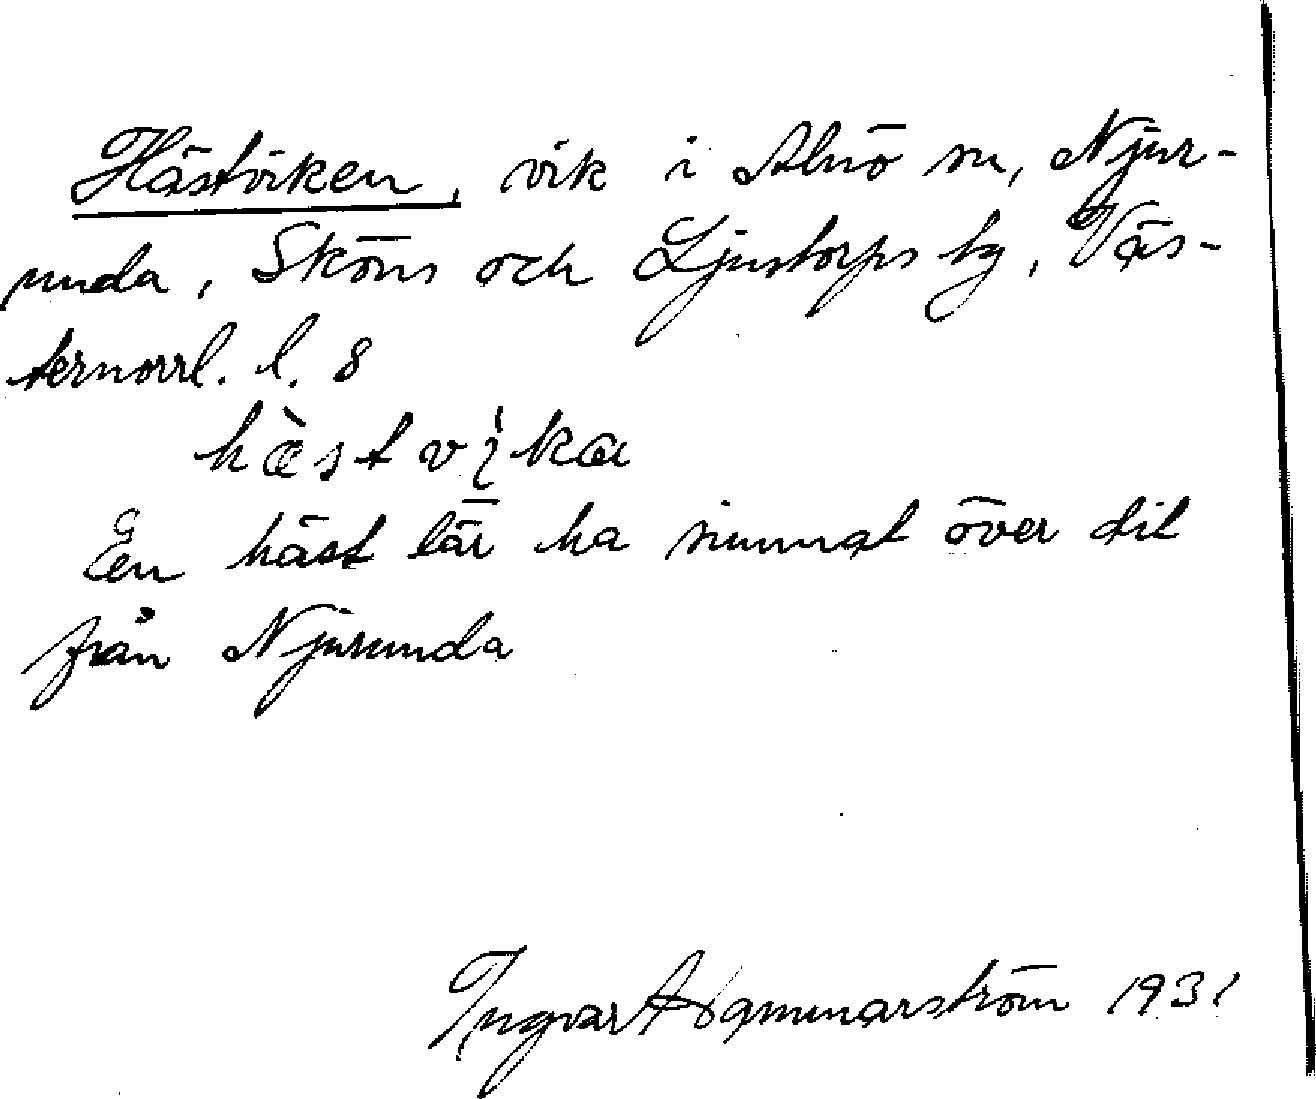 Hästviken, vik i Alnö sn, Njur-
unda, Sköns och Ljustorps tg, Väs-
ternorrl. l. 8
hæ̀stvi̢ka
En häst lär ha simmat över dit
från Njurunda
Ingvar Hammarström 1931